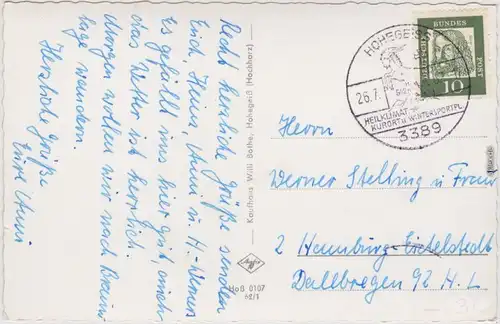 Recht herzliche Grüße senden
Euch, Heini, Anni u. H.-Werner
Es gefällt uns hier gut, auch
das Wetter ist herrlich.
Morgen wollen wir nach Braun-
lage wandern.
Herzliche Grüße
Eure Anni
Kaufhaus Willi Bothe, Hohegeiß (Hochharz)
Agfa
HoB 0107
62/1
HOHEGEISS
26.7.
HEILKLIMAT.
KURORT u. WINTERSPORTPL.
3389
DEUTSCHE
BUNDES
POST
10
Herrn
Werner Stelling u. Frau
2 Hamburg-Eidelstedt
Dallbregen 92 H. L.